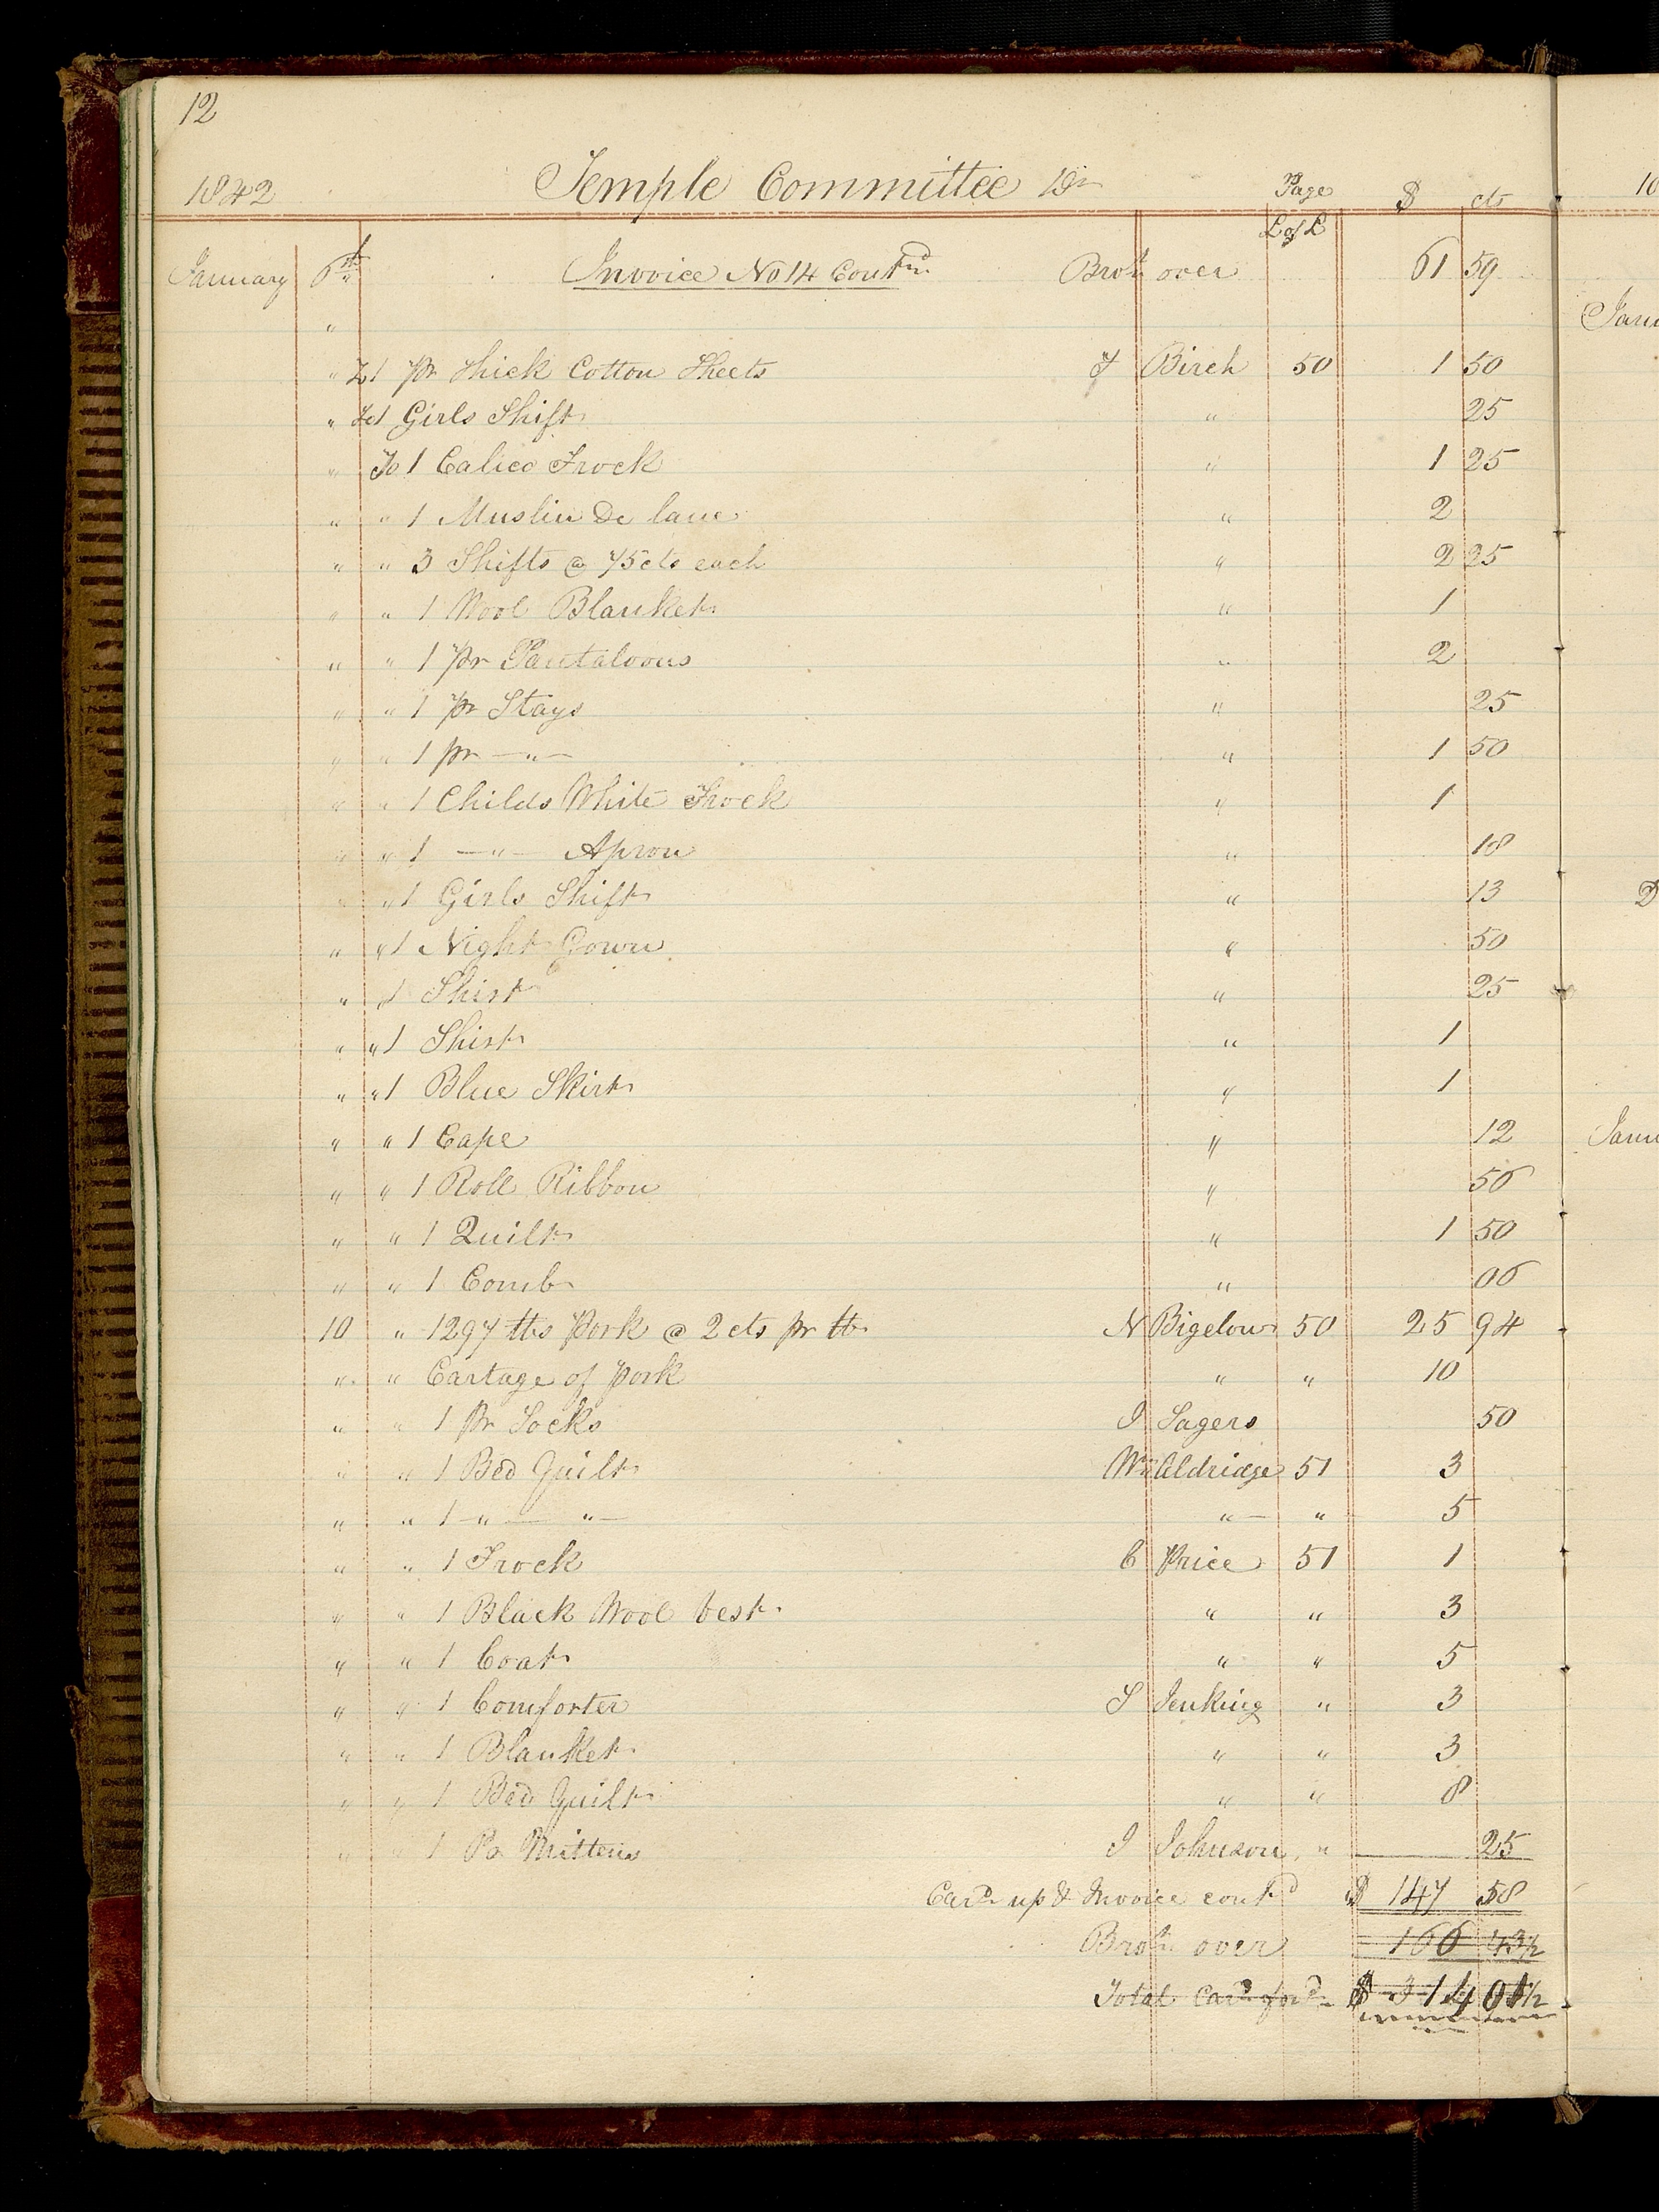 12
1842 Temple Committee Dr Page $ cts
L of L
January 6th Invoice No 14 Contnd Brot over 61 59
"
" To 1 pr Thick Cotton Sheets J Birch 50 1 50
" To 1 Girls Shift " 25
" To 1 Calico Frock " 1 25
" " 1 Muslin De lane " 2
" " 3 Shifts @ 75 cts each " 2 25
" " 1 Wool Blanket " 1
" " 1 pr Pantaloons " 2
" " 1 pr Stays " 25
" " 1 pr —"— " 1 50
" " 1 Childs White Frock " 1
" " 1 —"— Apron " 18
" " 1 Girls Shift " 13
" " 1 Night Gown " 50
" " 1 Shirt " 25
" " 1 Shirt " 1
" " 1 Blue Skirt " 1
" " 1 Cape " 12
" " 1 Roll Ribbon " 56
" " 1 Quilt " 1 50
" " 1 Comb " 06
10 " 1297 lbs Pork @ 2 cts pr lb N Bigelow 50 25 94
" " Cartage of Pork " " 10
" " 1 Pr Socks J Sagers 50
" " 1 Bed Quilt Wm Aldridge 51 3
" " 1 —"— "— "— " 5
" " 1 Frock C Price 51 1
" " 1 Black Wool Vest " " 3
" " 1 Coat " " 5
" " 1 Comforter S Jenking " 3
" " 1 Blanket " " 3
" " 1 Bed Quilt " " 8
" " 1 Pr Mittens J Johnson " 25
Card up & Invoice contd $ 147 58
Brot over 166 43½
Total Card ford $ 314 01½